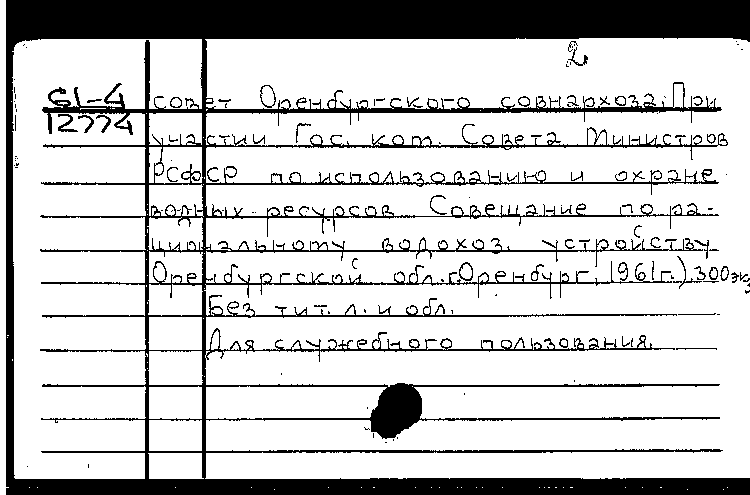 2
61-4 совет Оренбургского совнархоза. При
12774 участии Гос. ком. Совета Министров
РСФСР по использованию и охране
водных ресурсов. Совещание по ра-
циональному водохоз. устройству
Оренбургской обл. г. Оренбург, 1961 г.). 300 экз
Без тит. л. и обл.
Для служебного пользования.